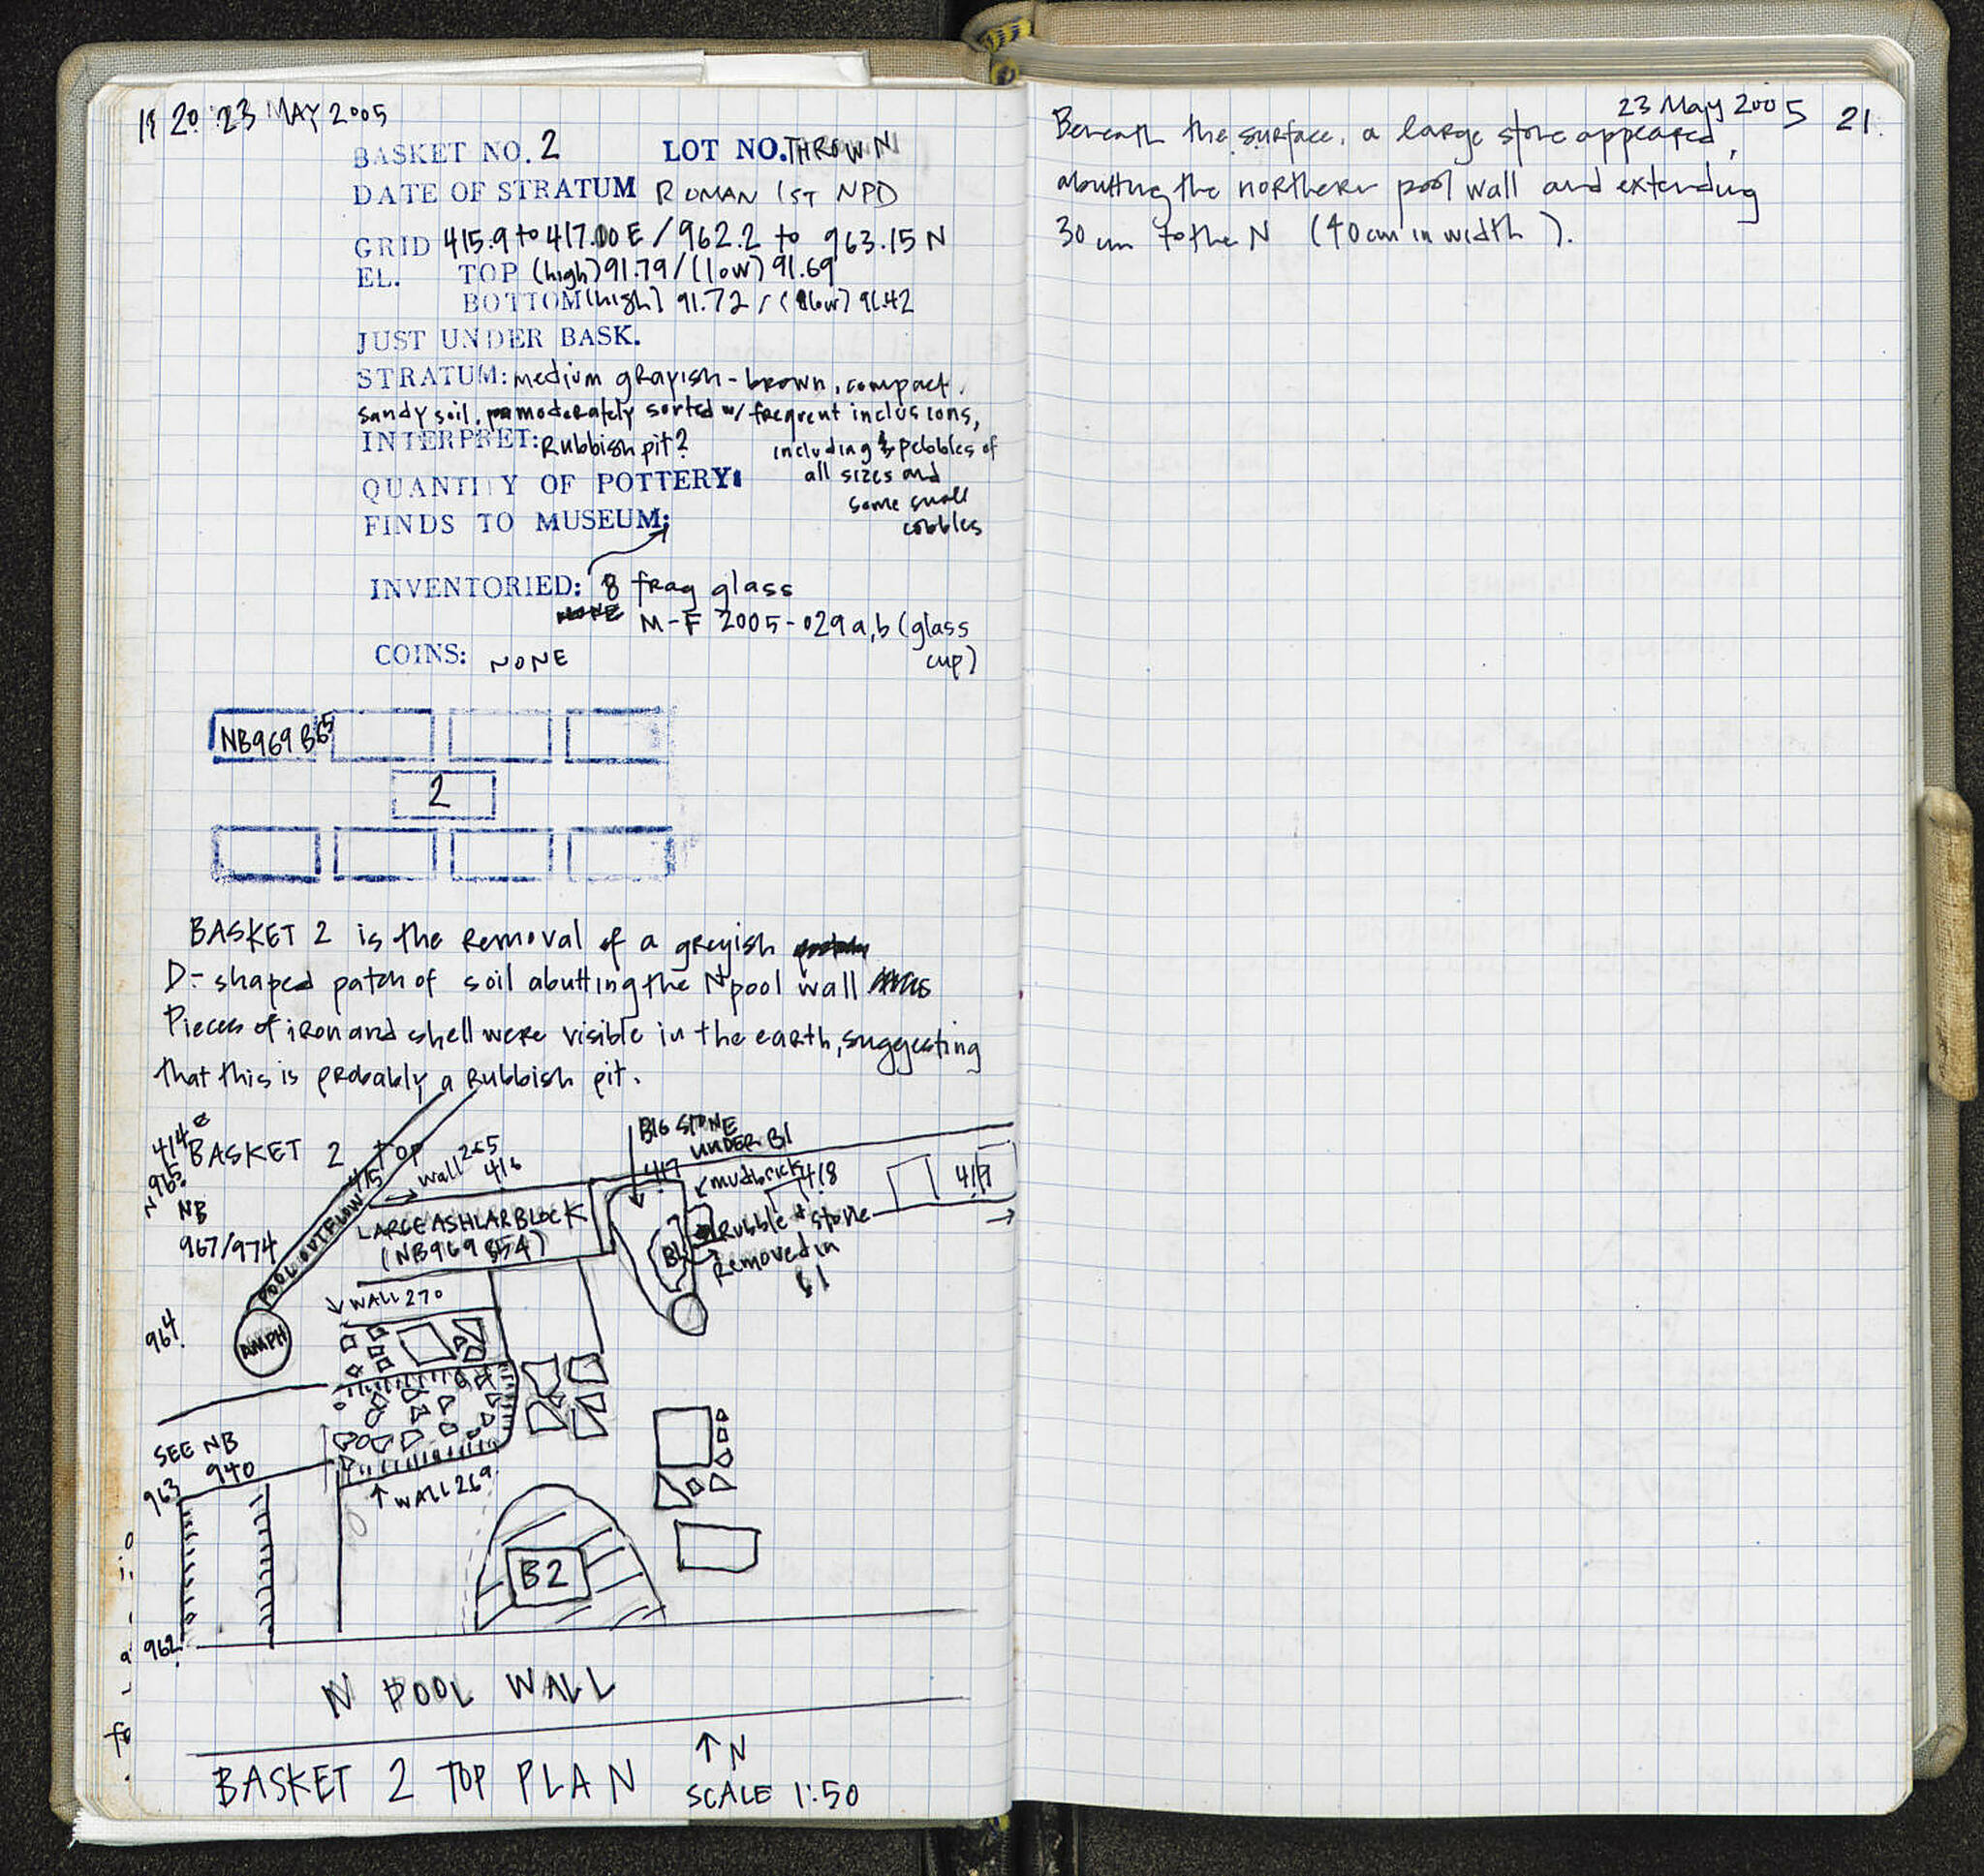 20 23 MAY 2005
BASKET NO. 2 LOT NO. THROWN
DATE OF STRATUM ROMAN 1ST NPD
GRID 415.9 to 417.00 E / 962.2 to 963.15 N
EL. TOP (high) 91.79 / (low) 91.69
BOTTOM (high) 91.72 / (low) 91.42
JUST UNDER BASK.
STRATUM: medium grayish-brown, compact,
sandy soil, moderately sorted w/ frequent inclusions,
INTERPRET: Rubbish pit? including pebbles of
all sizes and
QUANTITY OF POTTERY:
some small
FINDS TO MUSEUM:
cobbles
INVENTORIED: 8 frag glass
NONE M-F 2005-029 a,b (glass
cup)
COINS: NONE
NB969 B65
2
BASKET 2 is the removal of a greyish
D-shaped patch of soil abutting the N pool wall
Pieces of iron and shell were visible in the earth, suggesting
that this is probably a rubbish pit.
BIG STONE
UNDER B1
414 E
BASKET 2 top
965
N
NB
967/974
415
wall 265
416
417
mudbrick
418
419
POOL OUTFLOW
LARGE ASHLAR BLOCK
(NB969 B54)
B1
Rubble + stone
Removed in
b1
WALL 270
964
AMPH
SEE NB
940
963
WALL 269
B2
962
N POOL WALL
BASKET 2 TOP PLAN
N
SCALE 1:50
23 May 2005 21
Beneath the surface, a large stone appeared,
abutting the northern pool wall and extending
30 cm to the N (40 cm in width).